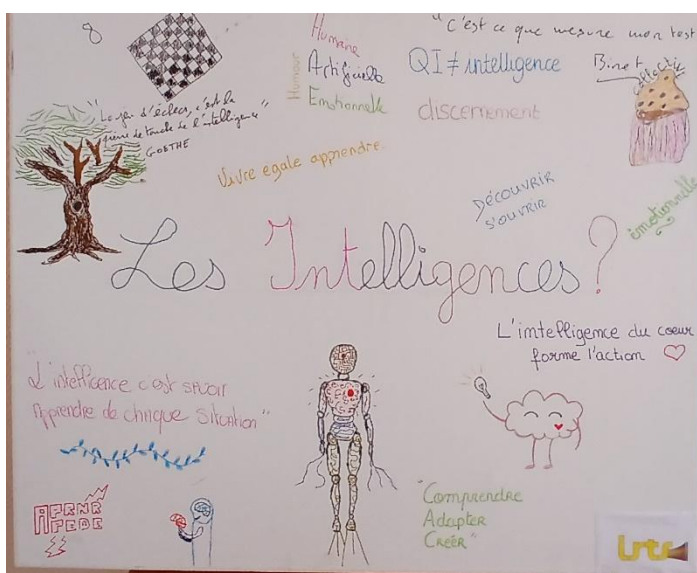 Humaine
Artificielle
Emotionnelle
Humour
"C'est ce que mesure mon test
Binet
QI ≠ intelligence
collective
discernement
"Le jeu d'échecs, c'est la
pierre de touche de l'intelligence"
GOETHE
Vivre égale apprendre.
DÉCOUVRIR
S'OUVRIR
émotionnelle
Les Intelligences ?
L'intelligence du coeur
forme l'action
"L'intellicence c'est savoir
Apprendre de chaque situation"
"Comprendre
Adapter
Créer"
irts